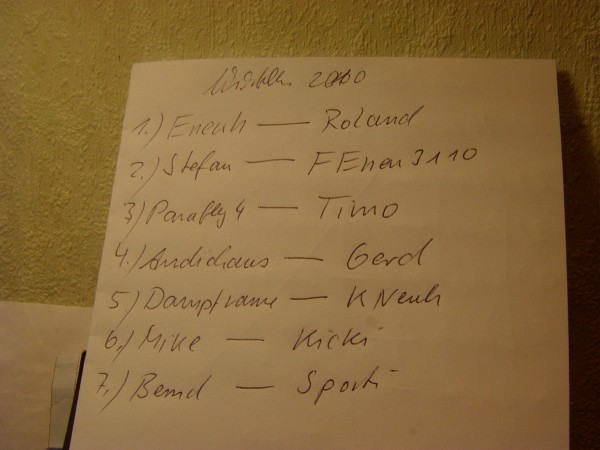 2010
1.) Eneuh — Roland
2.) Stefan — FEnen3110
3.) Parafly4 — Timo
4.) Andidaus — Gerd
5.) Dampframe — KNeuh
6.) Mike — Kicki
7.) Bernd — Sporti